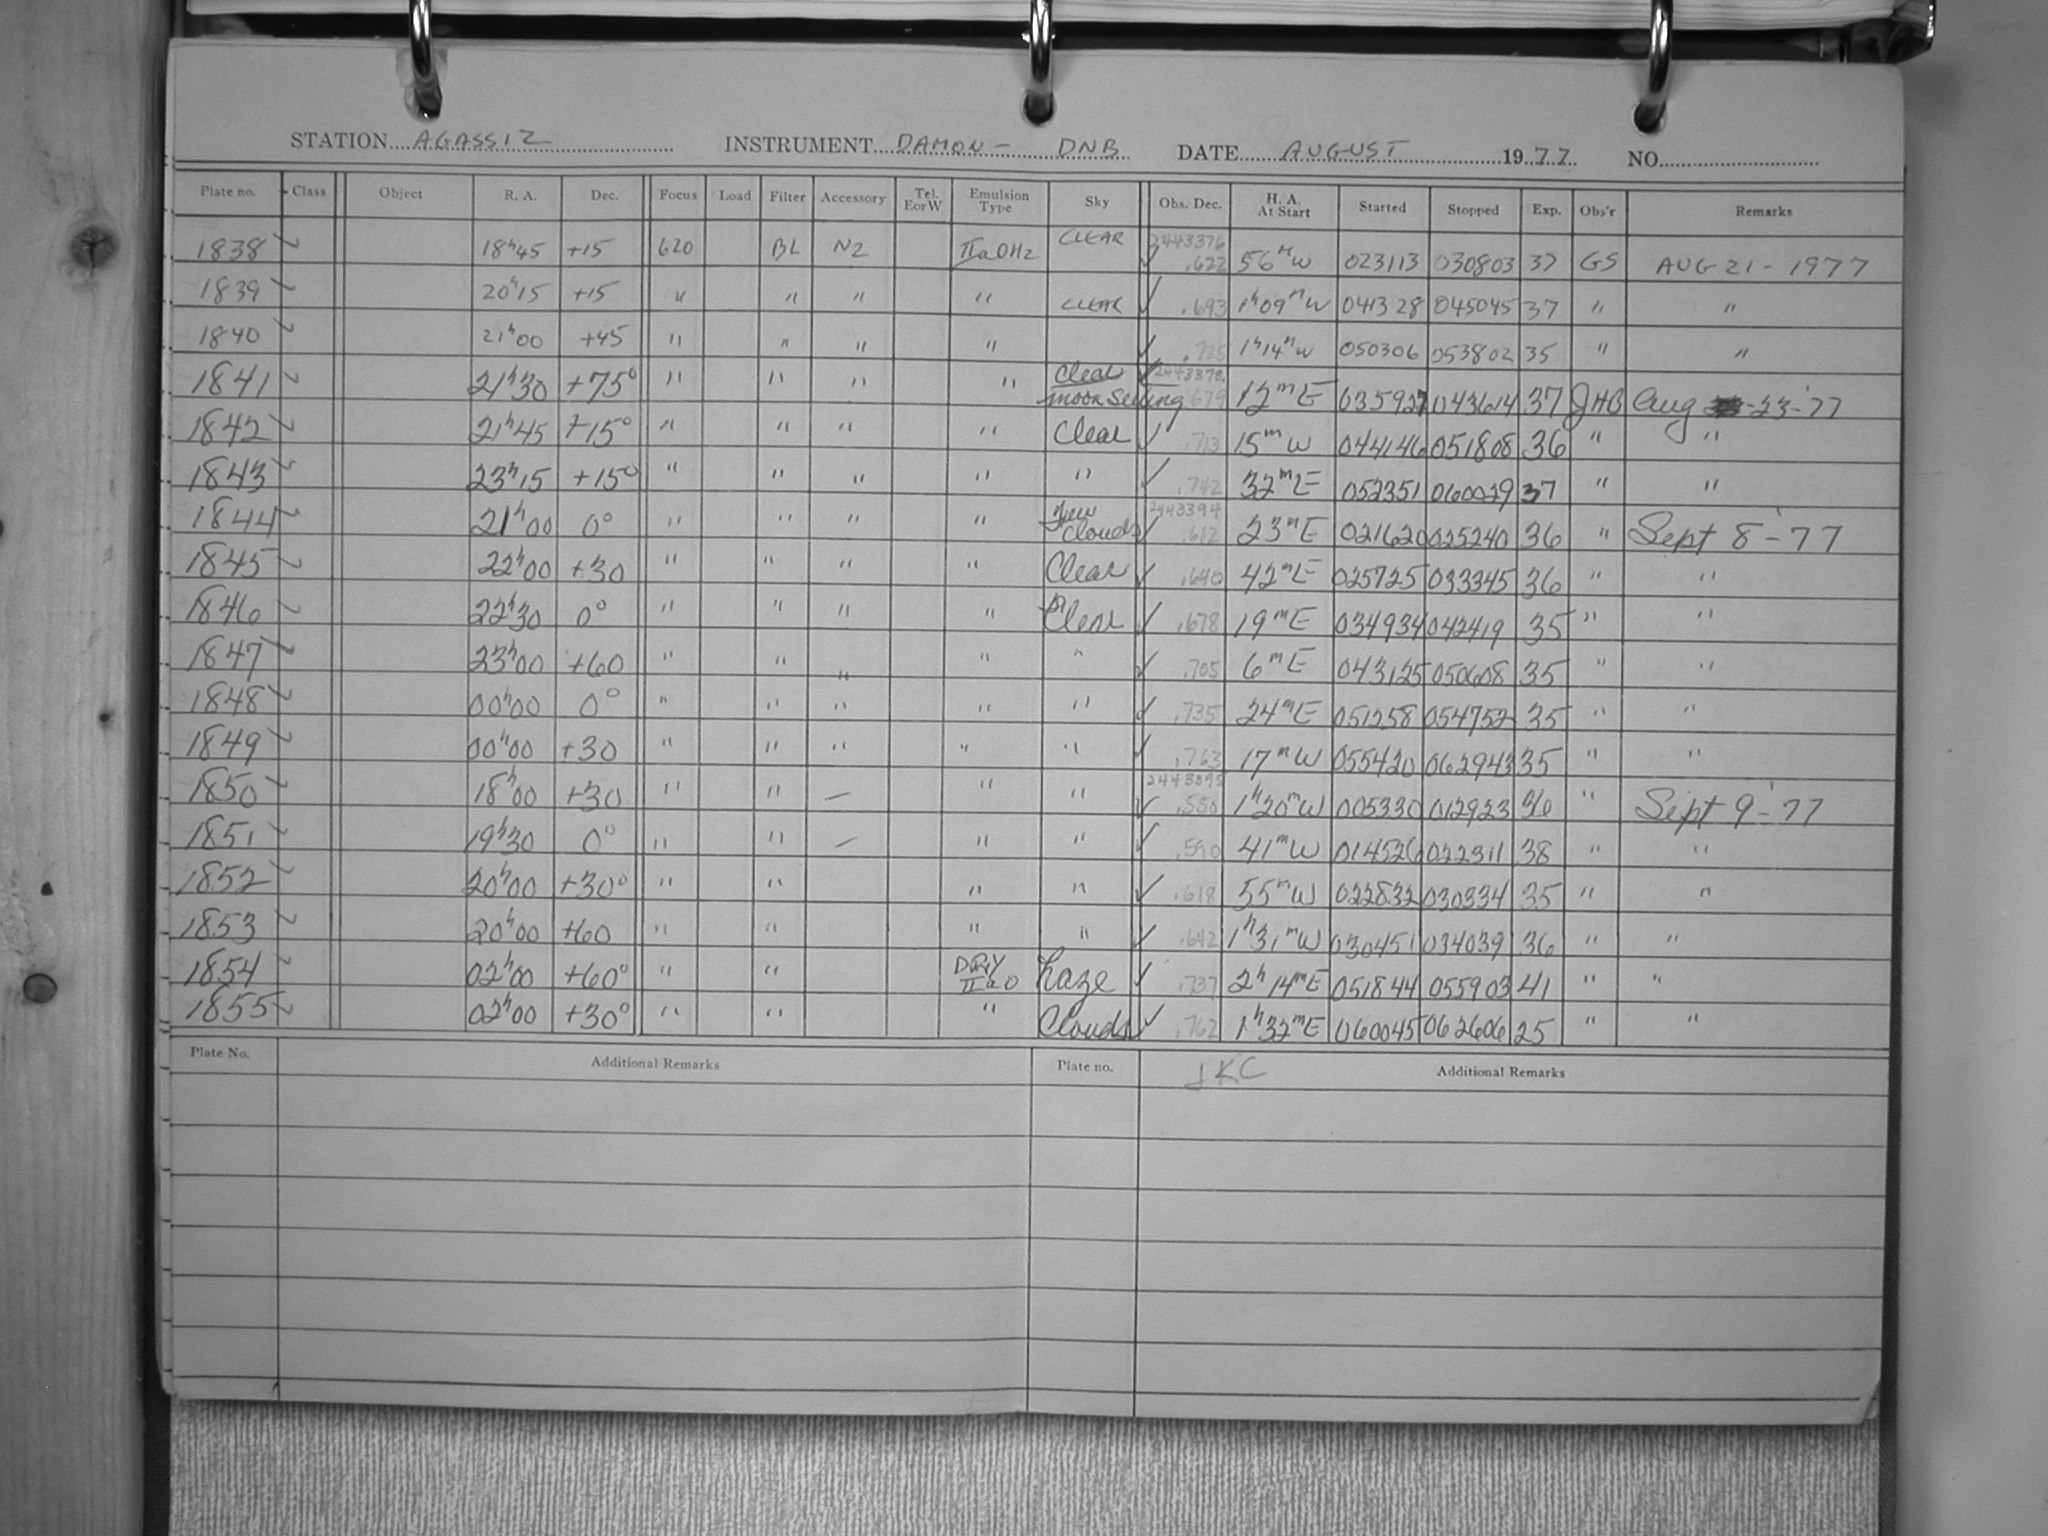 STATION AGASSIZ INSTRUMENT DAMON - DNB DATE AUGUST 1977 NO.
Plate no. Class Object R. A. Dec. Focus Load Filter Accessory Tel. EorW Emulsion Type Sky Obs. Dec. H. A. At Start Started Stopped Exp. Obs'r Remarks
1838 ✓ 18h45 +15 620 BL N2 IIaOH2 CLEAR 2443376 ✓ .622 56mW 023113 030803 37 GS AUG 21 - 1977
1839 ✓ 20h15 +15 " " " " CLEAR ✓ .693 1h09mW 041328 045045 37 " "
1840 ✓ 21h00 +45 " " " " ✓ .725 1h14mW 050306 053802 35 " "
1841 ✓ 21h30 +75° " " " " Clear moon setting ✓ 2443378. 679 12mE 035927 043614 37 JHB Aug 23-'77
1842 ✓ 21h45 +15° " " " " Clear ✓ .713 15mW 044146 051808 36 " "
1843 ✓ 23h15 +15° " " " " " ✓ .742 32mE 052351 060029 37 " "
1844 ✓ 21h00 0° " " " " few Clouds 2443394 ✓ .612 23mE 021620 025240 36 " Sept 8-'77
1845 ✓ 22h00 +30 " " " " Clear ✓ .640 42mE 025725 033345 36 " "
1846 ✓ 22h30 0° " " " " Clear ✓ .678 19mE 034934 042419 35 " "
1847 ✓ 23h00 +60 " " " " " ✓ .705 6mE 043125 050608 35 " "
1848 ✓ 00h00 0° " " " " " ✓ .735 24mE 051258 054752 35 " "
1849 ✓ 00h00 +30 " " " " " ✓ .763 17mW 055420 062943 35 " "
1850 ✓ 18h00 +30 " " — " " 2443395 ✓ .550 1h20mW 005330 012923 36 " Sept 9-'77
1851 ✓ 19h30 0° " " — " " ✓ .590 41mW 014526 022311 38 " "
1852 ✓ 20h00 +30° " " " " ✓ .618 55mW 022832 030334 35 " "
1853 ✓ 20h00 +60 " " " " ✓ .642 1h31mW 030451 034039 36 " "
1854 ✓ 02h00 +60° " " DRY IIaO haze ✓ .737 2h14mE 051844 055903 41 " "
1855 ✓ 02h00 +30° " " " Clouds ✓ .762 1h32mE 060045 062606 25 " "
Plate No. Additional Remarks Plate no. JKC Additional Remarks